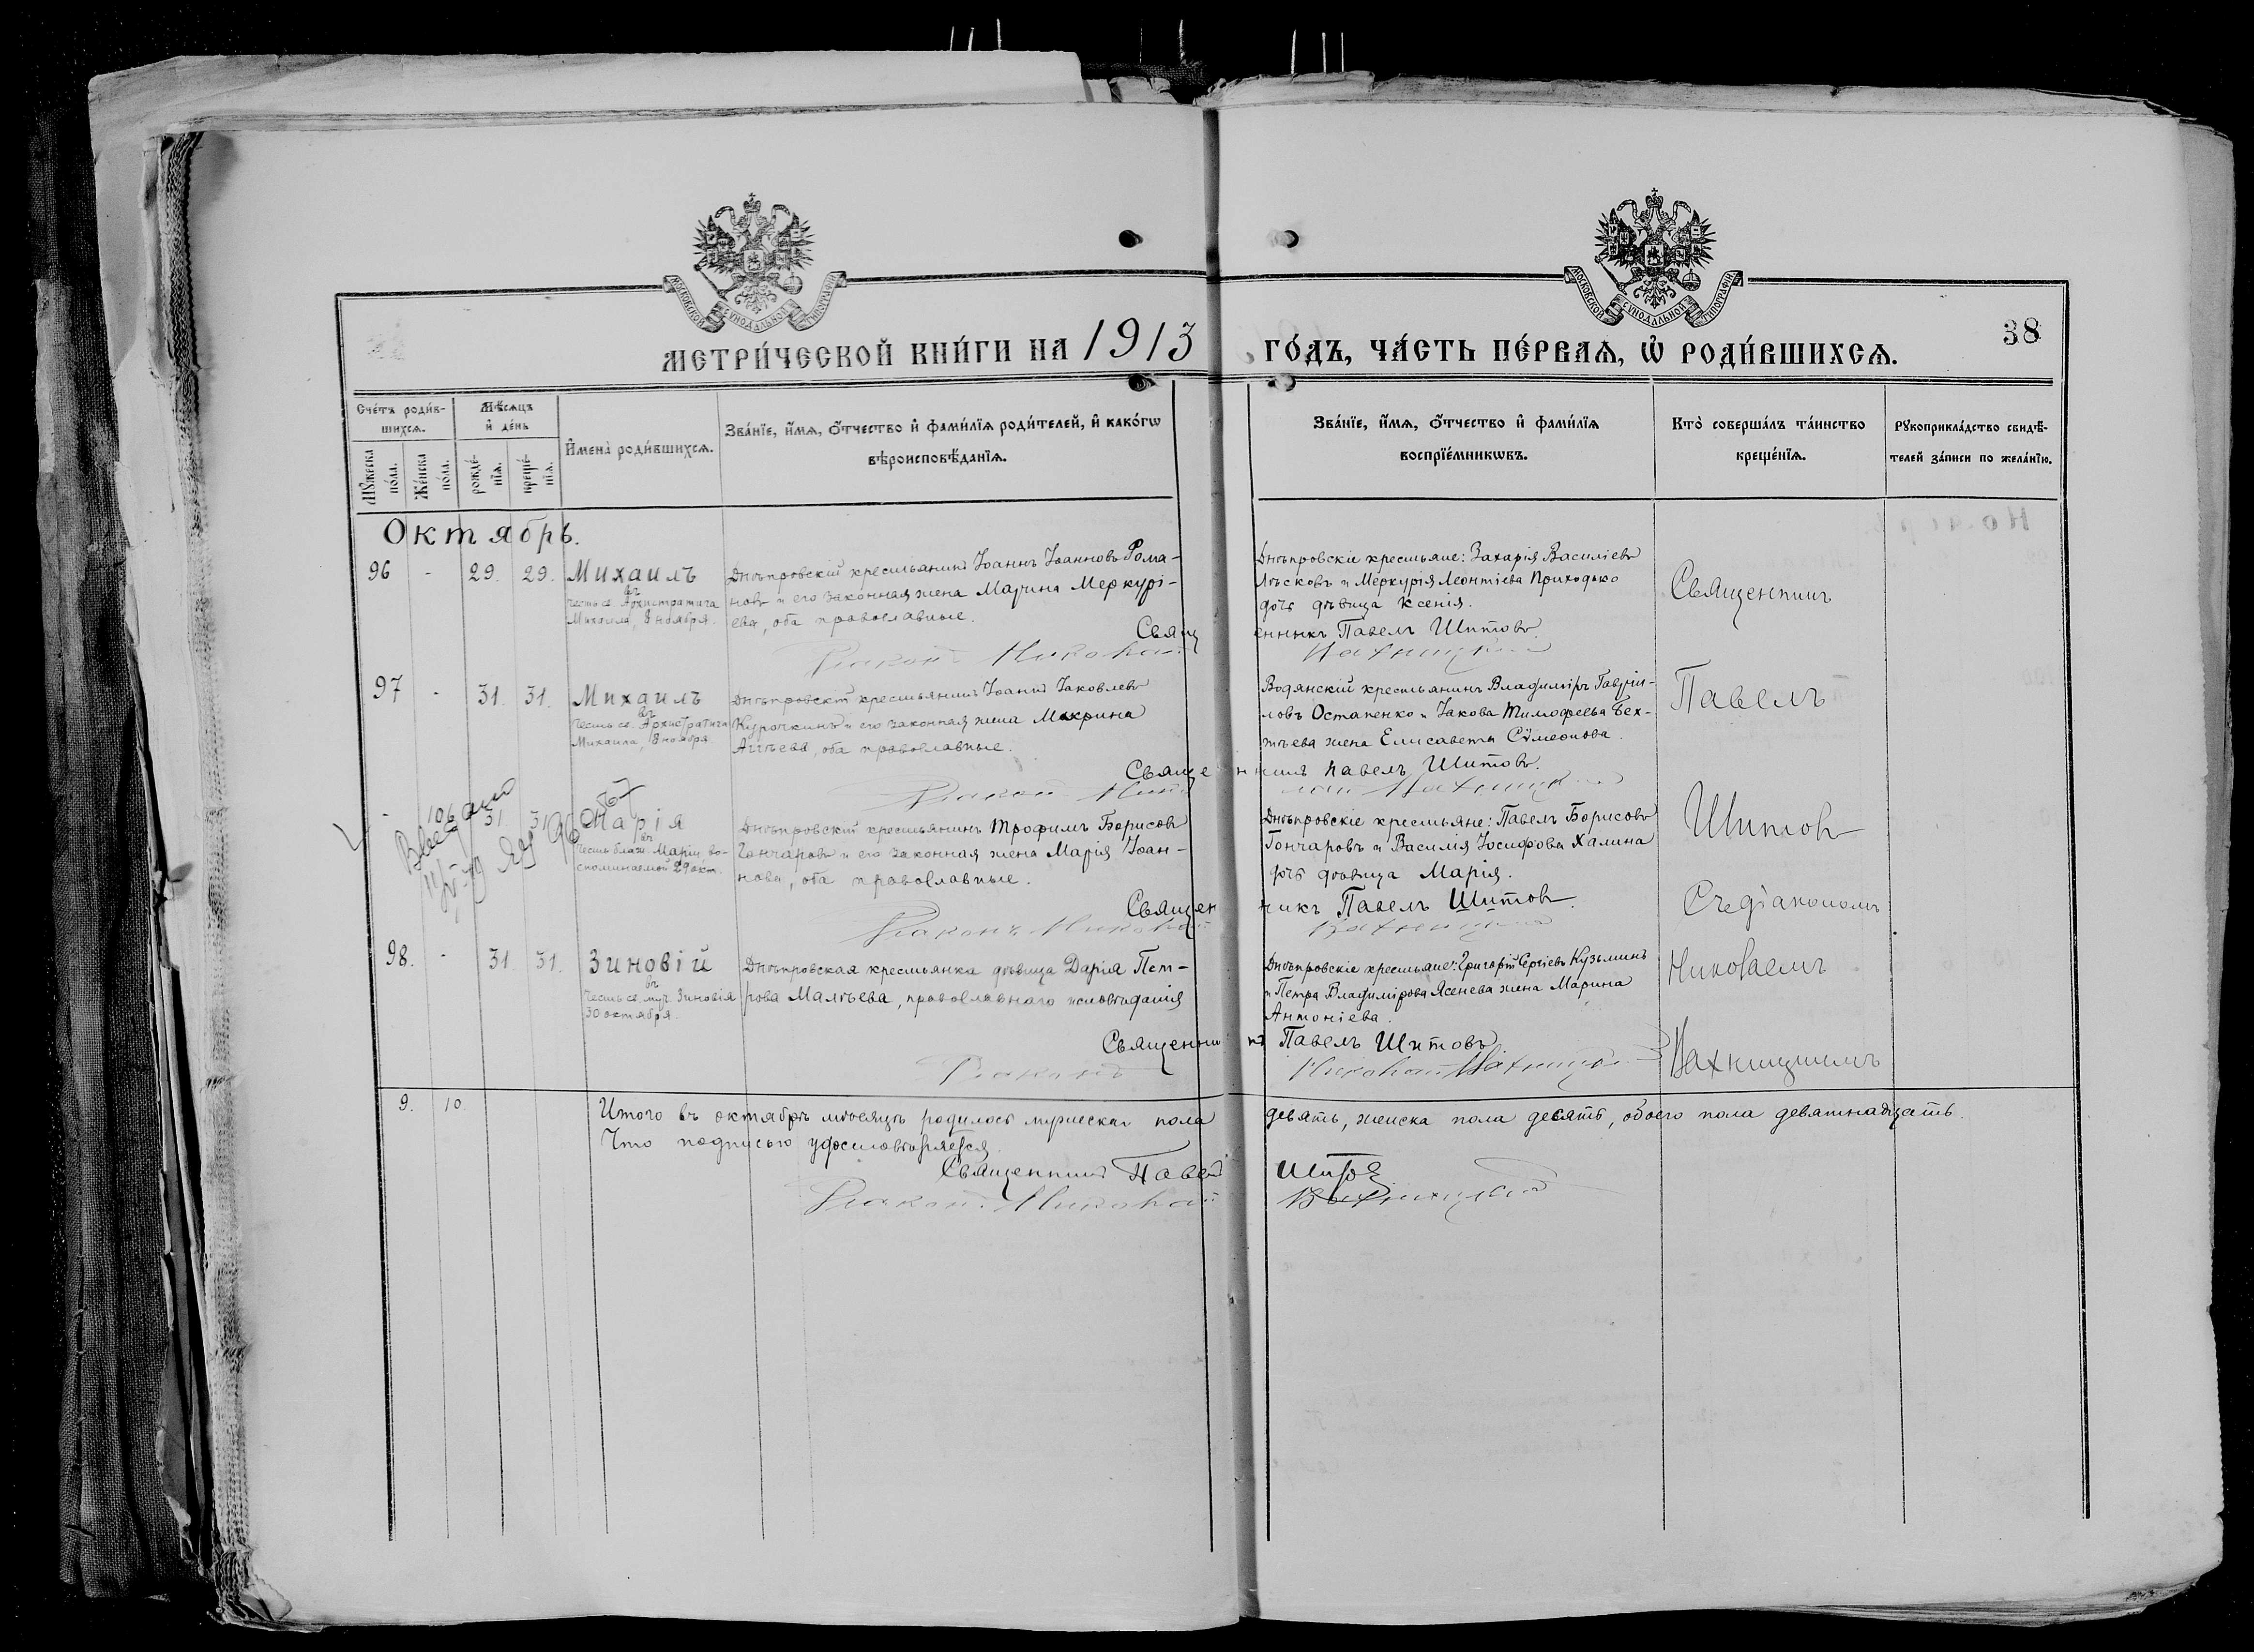 МОСКОВСКОЙ СѴНОДАЛЬНОЙ ТИПОГРАФІИ
МОСКОВСКОЙ СѴНОДАЛЬНОЙ ТИПОГРАФІИ
38
МЕТРИ́ЧЕСКОЙ КНИ́ГИ НА 1913 ГО́ДЪ, ЧА́СТЬ ПЕ́РВАѦ, Ѡ РОДИ́ВШИХСѦ.
Сче́тъ роди́в-
шихсѧ.
Мꙋжеска
по́ла.
Же́нска
по́ла.
Мѣ́сѧцъ
и де́нь
рожде́-
нїѧ.
креще́-
нїѧ.
Имена̀ роди́вшихсѧ.
Зва́нїе, и́мѧ, ѻ́тчество и фами́лїѧ роди́телей, и како́гѡ
вѣроисповѣ́данїѧ.
Зва́нїе, и́мѧ, ѻ́тчество и фами́лїѧ
воспрїе́мникѡвъ.
Кто̀ соверша́лъ та́инство
креще́нїѧ.
Рꙋкоприкла́дство свидѣ́-
телей за́писи по жела́нїю.
Октябрь.
96 - 29. 29. Михаилъ
въ
честь св. Архистратига
Михаила, 8 ноября.
Днѣпровскій крестьянинъ Іоаннъ Іоанновъ Рома-
новъ и его законная жена Марина Меркурі-
ева, оба православные.
Днѣпровскіе крестьяне: Захарія Василіевъ
Лѣсковъ и Меркурія Леонтіева Приходько
дочь дѣвица Ксенія.
Священникъ Павелъ Шитовъ.
Діаконъ Николай
97 - 31. 31. Михаилъ
въ
честь св. Архистратига
Михаила, 8 ноября
Днѣпровскій крестьянинъ Іоаннъ Іаковлевъ
Курочкинъ и его законная жена Макрина
Аггѣева, оба православные.
Водянскій крестьянинъ Владиміръ Гаврiи-
ловъ Остапенко и Іакова Тимофеева Бех-
тѣева жена Елисавета Сѵмеонова.
Священникъ Павелъ Шитовъ.
Діаконъ
- 106 31. 31. Марія
въ
честь блаж. Маріи, во-
споминаемой 29 окт.
Днѣпровскій крестьянинъ Трофимъ Борисовъ
Гончаровъ и его законная жена Марія Іоан-
нова, оба православные.
Днѣпровскіе крестьяне: Павелъ Борисовъ
Гончаровъ и Василія Іосифова Халина
дочь дѣвица Марія.
Священникъ Павелъ Шитовъ.
Діаконъ Николай
98. - 31. 31. Зиновій
въ
честь св. муч. Зиновія
30 октября.
Днѣпровская крестьянка дѣвица Дарія Пет-
рова Малѣева, православнаго исповѣданія
Днѣпровскіе крестьяне: Григорій Сергіевъ Кузьминъ
и Петра Владимірова Ясенева жена Марина
Антоніева.
Священникъ Павелъ Шитовъ
Діаконъ Николай
Священникъ
Павелъ
Шитовъ
Съ діакономъ
Николаемъ
9. 10. Итого въ октябрѣ мѣсяцѣ родилось мужеска пола девять, женска пола десять, обоего пола девятнадцать.
Что подписью удостовѣряется.
Священникъ Павелъ Шитовъ
Діаконъ Николай